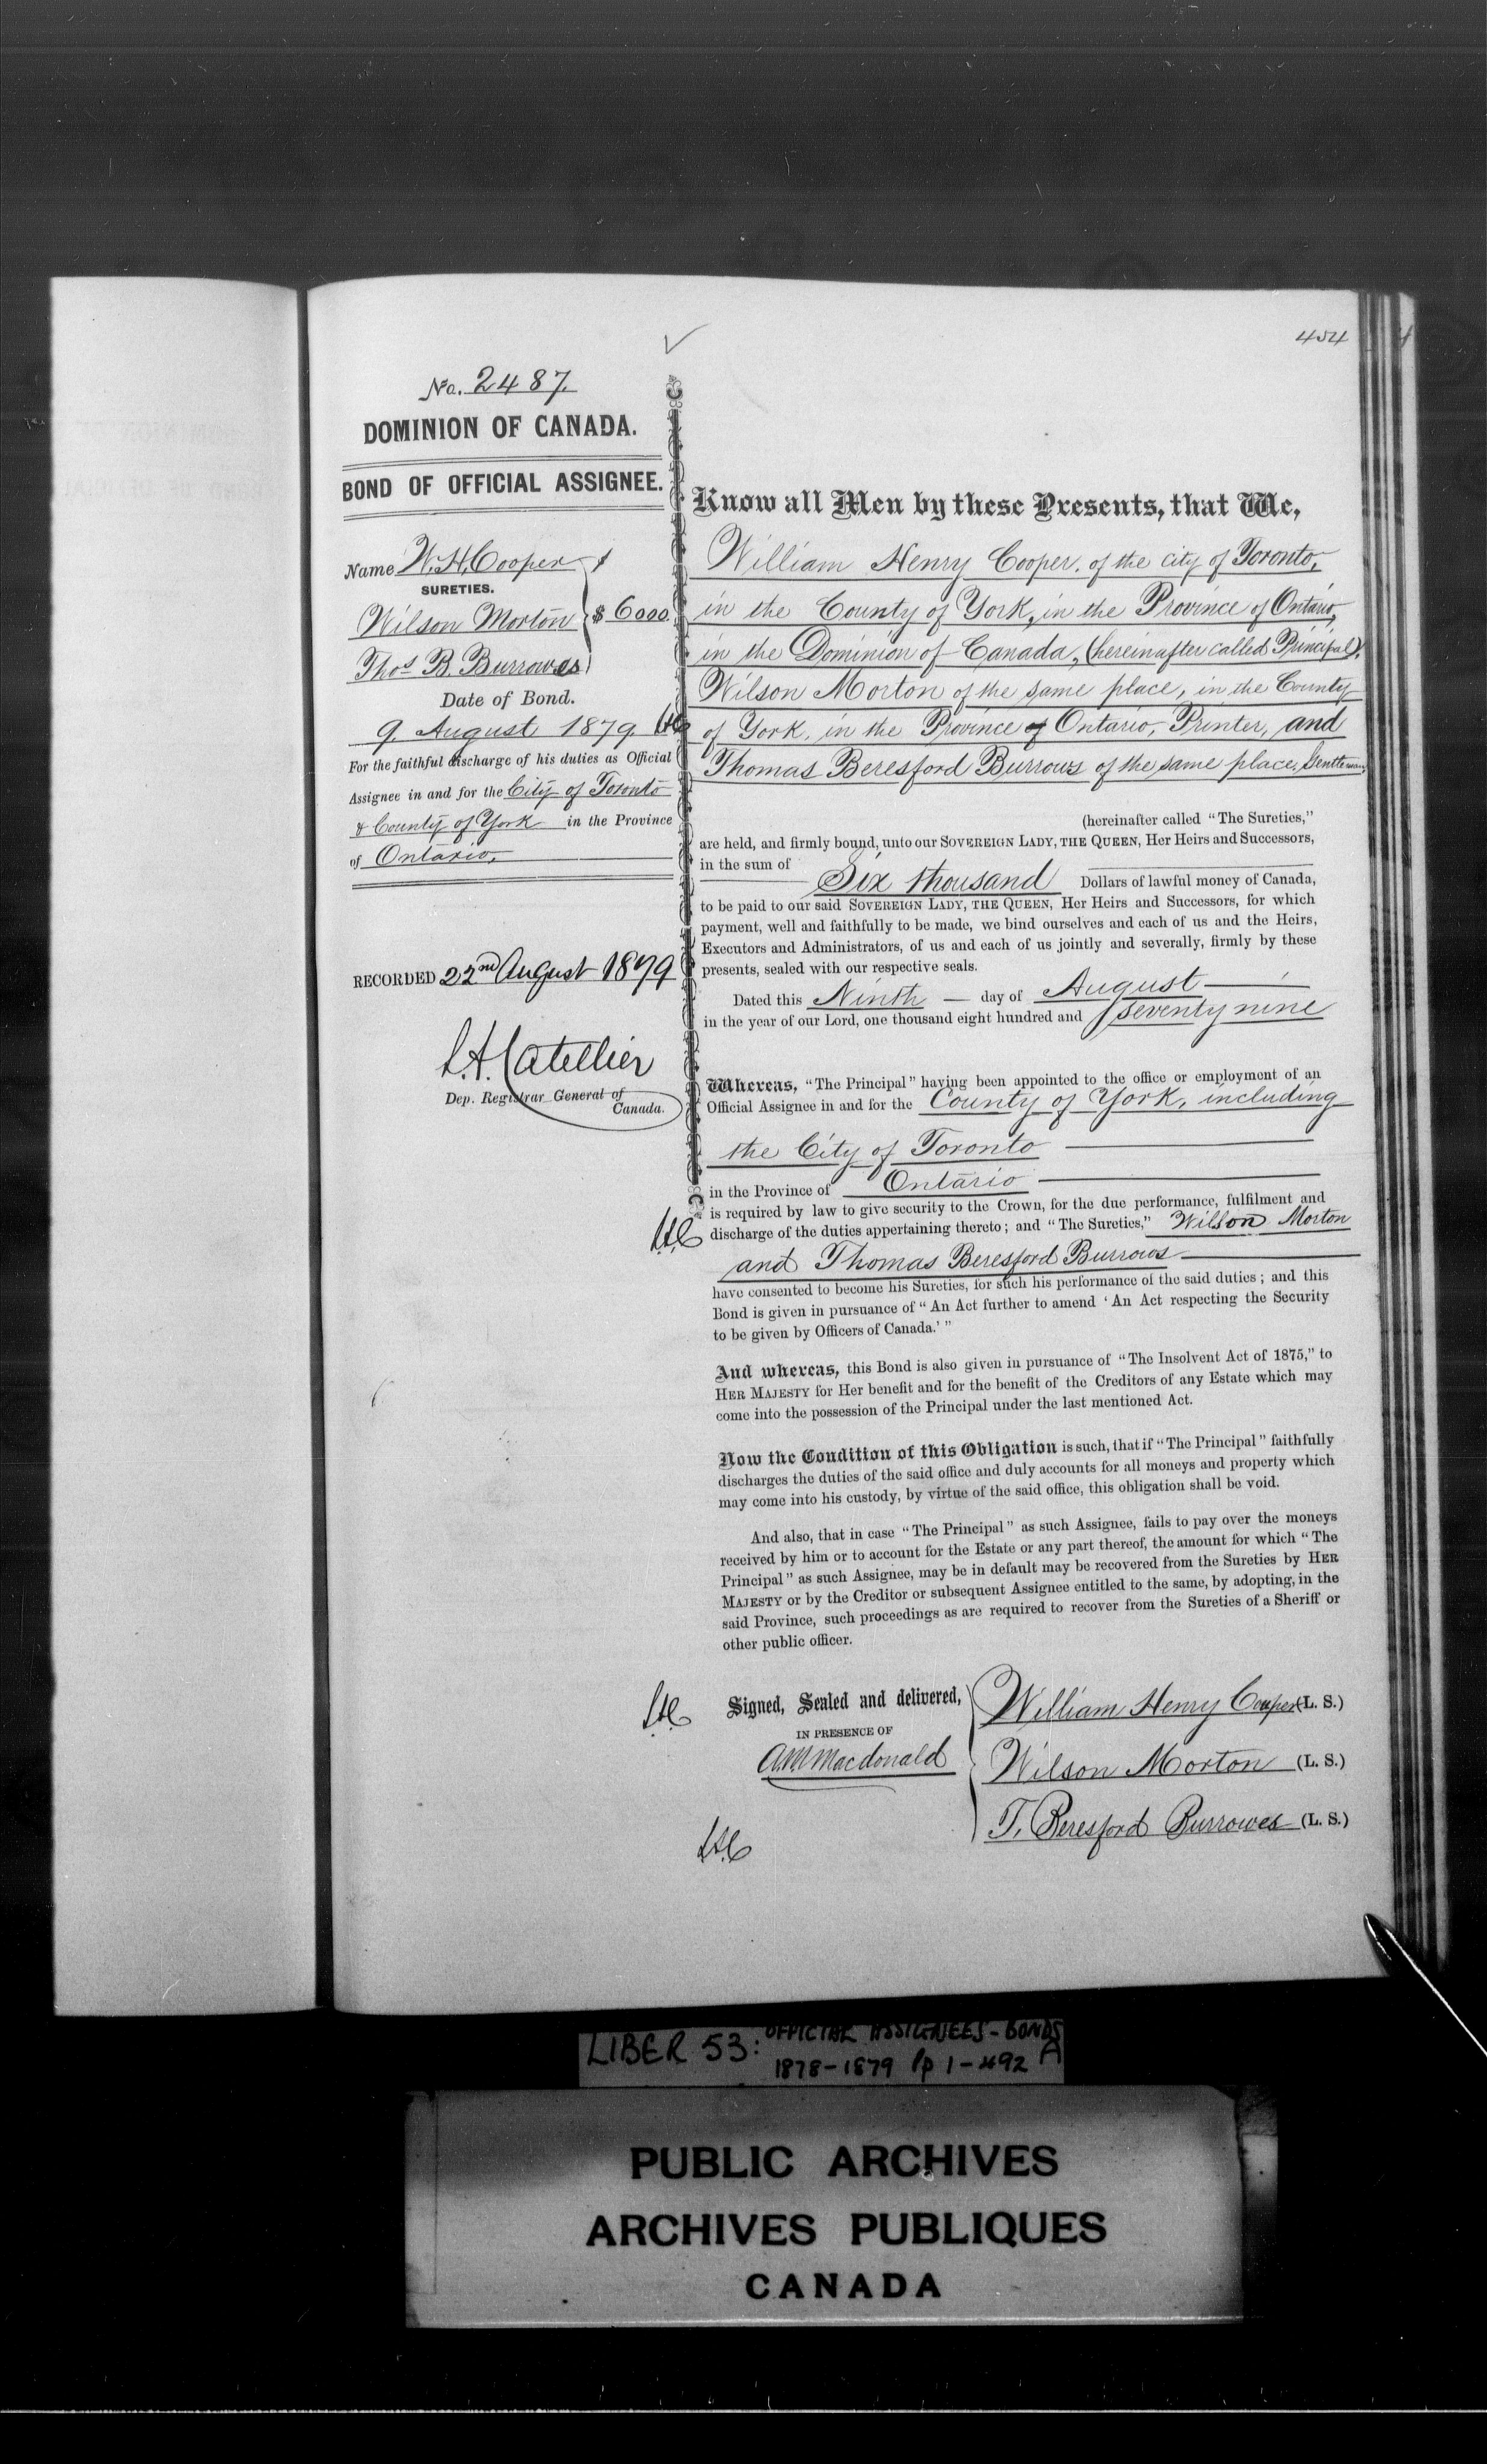 454
No. 2487.
DOMINION OF CANADA.
BOND OF OFFICIAL ASSIGNEE.
Name W. H. Cooper
SURETIES.
Wilson Morton
$ 6000.
Thos B. Burrowes
Date of Bond.
9. August 1879.
For the faithful discharge of his duties as Official
Assignee in and for the City of Toronto
& County of York in the Province
of Ontario.
RECORDED 22nd August 1879
L.A. Catellier
Dep. Registrar General of
Canada.
Know all Men by these Presents, that We,
William Henry Cooper, of the city of Toronto,
in the County of York, in the Province of Ontario,
in the Dominion of Canada, (hereinafter called Principal),
Wilson Morton of the same place, in the County
of York, in the Province of Ontario, Printer, and
Thomas Beresford Burrows of the same place, Gentleman,
(hereinafter called "The Sureties,"
are held, and firmly bound, unto our SOVEREIGN LADY, THE QUEEN, Her Heirs and Successors,
in the sum of
Six thousand Dollars of lawful money of Canada,
to be paid to our said SOVEREIGN LADY, THE QUEEN, Her Heirs and Successors, for which
payment, well and faithfully to be made, we bind ourselves and each of us and the Heirs,
Executors and Administrators, of us and each of us jointly and severally, firmly by these
presents, sealed with our respective seals.
Dated this Ninth — day of August
in the year of our Lord, one thousand eight hundred and seventy nine
Whereas, "The Principal" having been appointed to the office or employment of an
Official Assignee in and for the County of York, including
the City of Toronto
in the Province of Ontario
is required by law to give security to the Crown, for the due performance, fulfilment and
discharge of the duties appertaining thereto; and "The Sureties," Wilson Morton
and Thomas Beresford Burrows
have consented to become his Sureties, for such his performance of the said duties; and this
Bond is given in pursuance of "An Act further to amend 'An Act respecting the Security
to be given by Officers of Canada.'"
And whereas, this Bond is also given in pursuance of "The Insolvent Act of 1875," to
HER MAJESTY for Her benefit and for the benefit of the Creditors of any Estate which may
come into the possession of the Principal under the last mentioned Act.
Now the Condition of this Obligation is such, that if "The Principal" faithfully
discharges the duties of the said office and duly accounts for all moneys and property which
may come into his custody, by virtue of the said office, this obligation shall be void.
And also, that in case "The Principal" as such Assignee, fails to pay over the moneys
received by him or to account for the Estate or any part thereof, the amount for which "The
Principal" as such Assignee, may be in default may be recovered from the Sureties by HER
MAJESTY or by the Creditor or subsequent Assignee entitled to the same, by adopting, in the
said Province, such proceedings as are required to recover from the Sureties of a Sheriff or
other public officer.
Signed, Sealed and delivered,
IN PRESENCE OF
A.M. Macdonald
William Henry Cooper (L. S.)
Wilson Morton (L. S.)
T. Beresford Burrowes (L. S.)
LIBER 53: OFFICIAL ASSIGNEES - BONDS
1878-1879 pp 1-492 A
PUBLIC ARCHIVES
ARCHIVES PUBLIQUES
CANADA